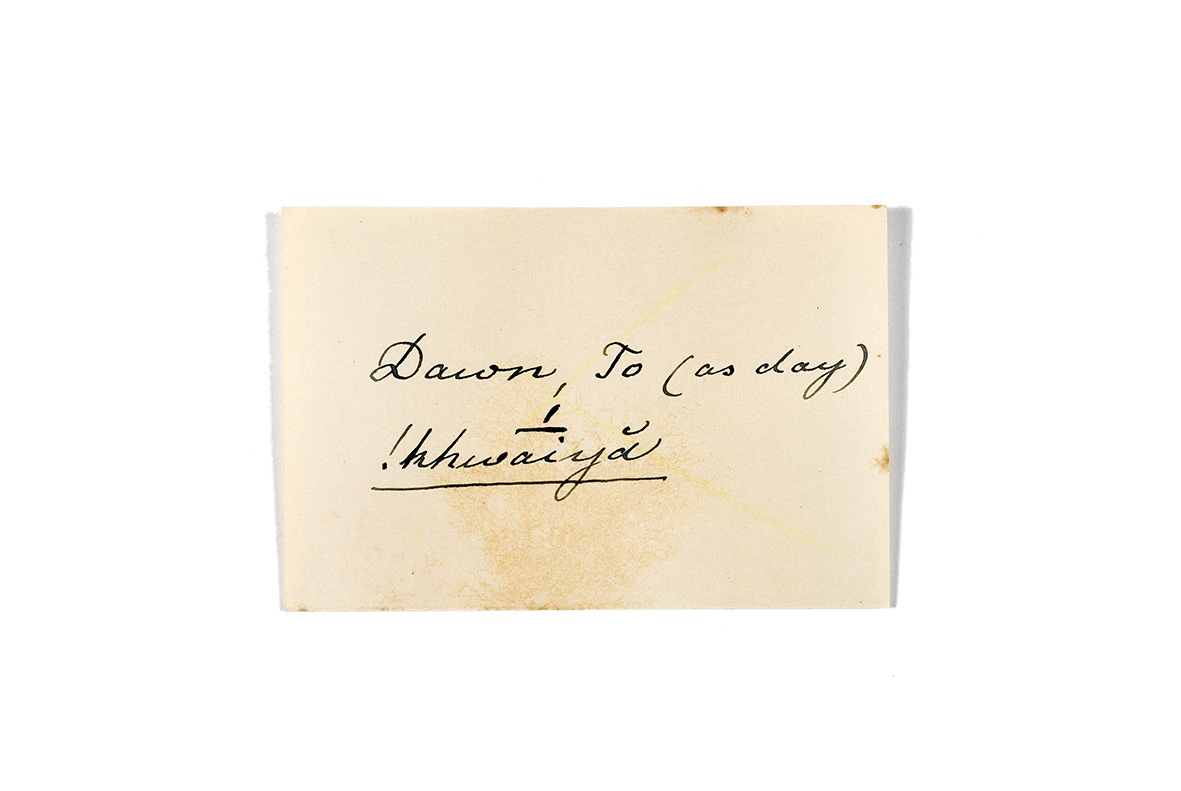 Dawn, To (as day)
!khwā́iyă